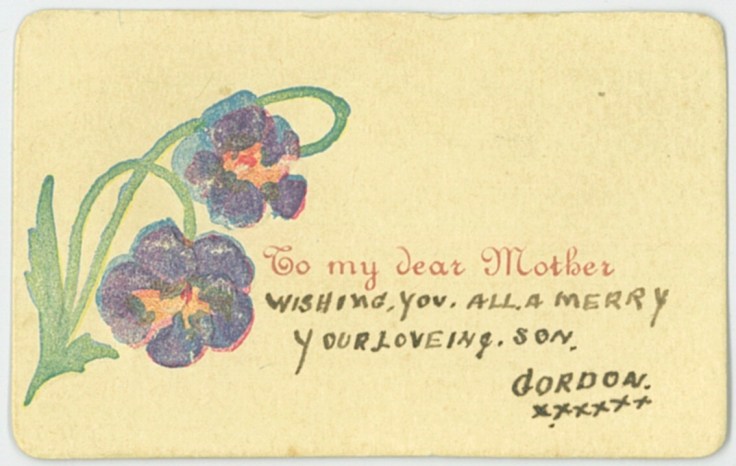 To my dear Mother
WISHING, YOU. ALL. A MERRY
YOUR LOVEING. SON.
GORDON.
xxxxxx